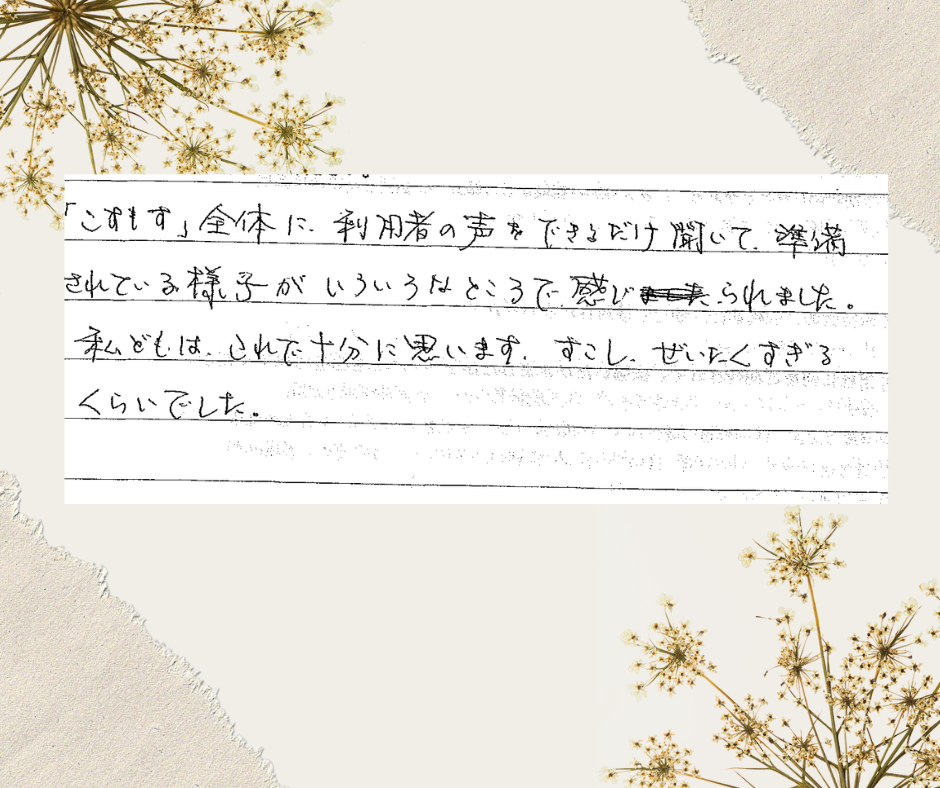 「こすもす」全体に、利用者の声をできるだけ聞いて、準備
されている様子がいろいろなところで感じられました。
私どもは、これで十分に思います。すこし、ぜいたくすぎる
くらいでした。